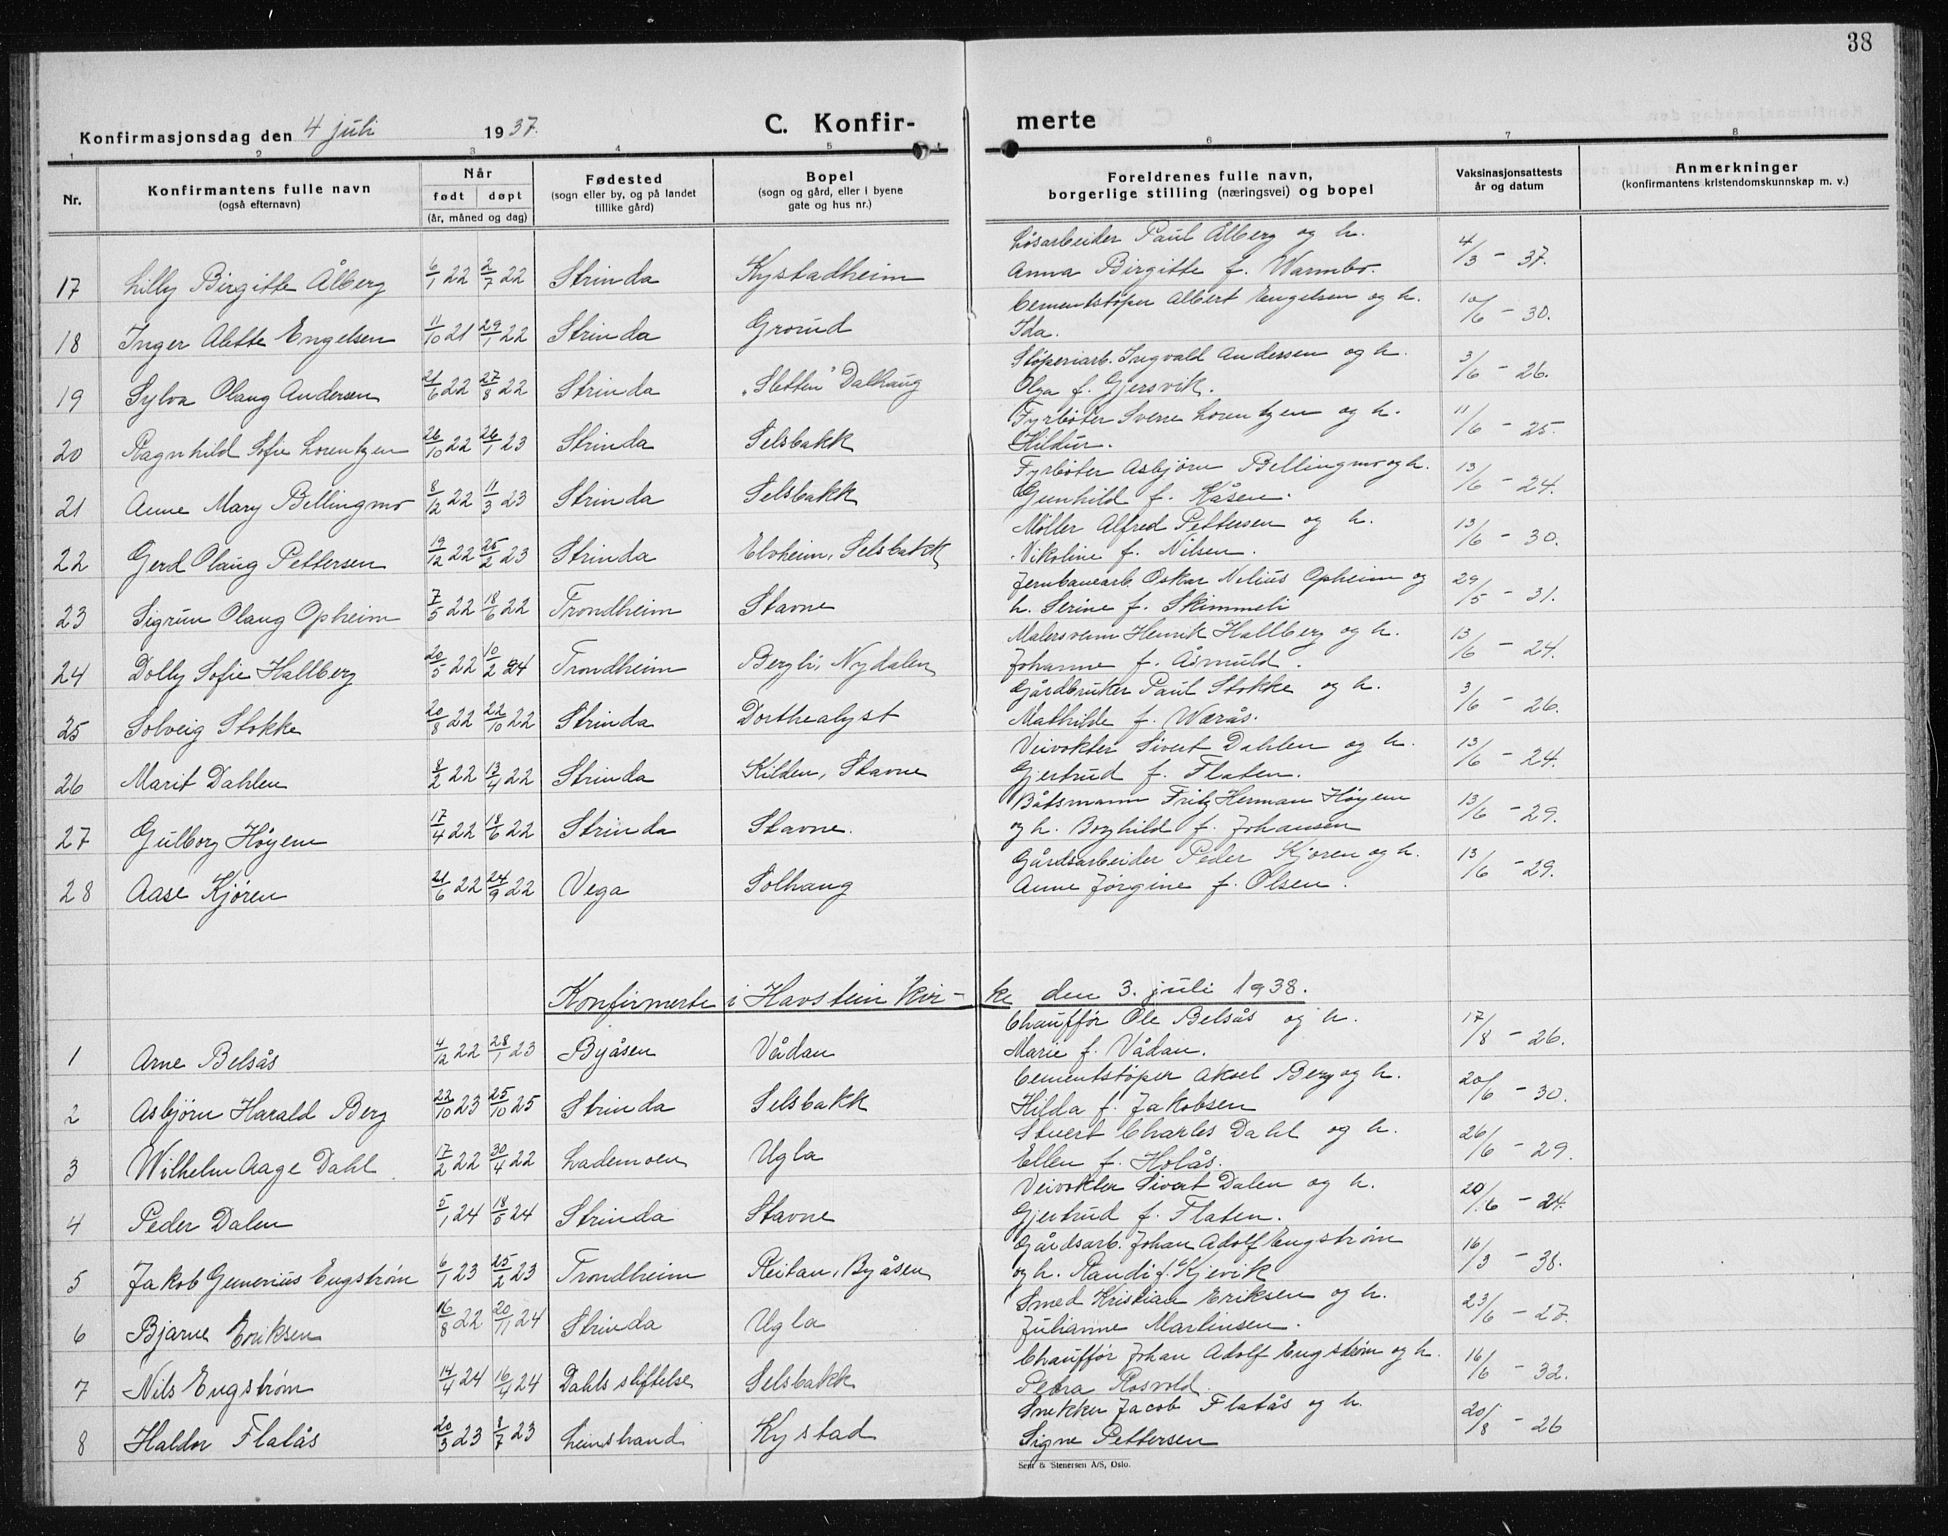 38
Konfirmasjonsdag den 4 juli 1937. C. Konfir- merte
1 2 3 4 5 6 7 8
Nr. Konfirmantens fulle navn (også efternavn) Når født døpt (år, måned og dag) Fødested (sogn eller by, og på landet tillike gård) Bopel (sogn og gård, eller i byene gate og hus nr.) Foreldrenes fulle navn, borgerlige stilling (næringsvei) og bopel Vaksinasjonsattests år og datum Anmerkninger (konfirmantens kristendomskunnskap m. v.)
Løsarbeider Paul Ålberg og h.
17 Lilly Birgitte Ålberg 6/1 22 2/7 22 Strinda Kystadheim Anna Birgitte f. Warmbo. 4/3 - 37.
Cementstøper Albert Engelsen og h.
18 Inger Alette Engelsen 11/10 21 29/1 22 Strinda Grorud Ida. 10/6 - 30.
Støperiarb. Ingvald Andersen og h.
19 Sylva Olaug Andersen 21/6 22 27/8 22 Strinda "Sletten" Dalhaug Olga f. Gjersvik. 3/6 - 26.
Fyrbøter Sverre Lorentzen og h.
20 Ragnhild Sofie Lorentzen 26/10 22 26/1 23 Strinda Selsbakk Hildur. 11/6 - 25.
Fyrbøter Asbjørn Bellingmo og h.
21 Anne Mary Bellingmo 8/12 22 11/3 23 Strinda Selsbakk Gunhild f. Kåsen. 13/6 - 24.
Møller Alfred Pettersen og h.
22 Gerd Olaug Pettersen 19/12 22 25/2 23 Strinda Elvheim, Selsbakk Nikoline f. Nilsen. 13/6 - 30.
Jernbanearb. Oskar Nilius Opheim og
23 Sigrun Olaug Opheim 7/5 22 18/6 22 Trondheim Stavne h. Serine f. Skimmeli 29/5 - 31.
Malersvenn Henrik Hallberg og h.
24 Dolly Sofie Hallberg 20/5 22 10/2 24 Trondheim Bergli, Nydalen Johanne f. Åsmuld. 13/6 - 24.
Gårdbruker Paul Stokke og h.
25 Solveig Stokke 20/8 22 22/10 22 Strinda Dorthealyst Mathilde f. Wærås. 3/6 - 26.
Veivokter Sivert Dahlen og h.
26 Marit Dahlen 8/2 22 17/4 22 Strinda Kilden, Stavne Gjertrud f. Flaten. 13/6 - 24.
Båtsmann Fritz Herman Høyem
27 Gulborg Høyem 17/4 22 18/6 22 Strinda Stavne. og h. Borghild f. Johansen 13/6 - 29.
Gårdsarbeider Peder Kjøren og h.
28 Aase Kjøren 21/6 22 24/9 22 Vega Solhaug Anne Jørgine f. Olsen. 13/6 - 29.
Konfirmerte i Havstein kir- ke den 3. juli 1938.
Chauffør Ole Belsås og h.
1 Arne Belsås 4/12 22 28/1 23 Byåsen Vådan Marie f. Vådan. 17/8 - 26.
Cementstøper Aksel Berg og h.
2 Asbjørn Harald Berg 22/10 23 25/10 25 Strinda Selsbakk Hilda f. Jakobsen 20/6 - 30.
Stuert Charles Dahl og h.
3 Wilhelm Aage Dahl 17/2 22 30/4 22 Lademoen Ugla Ellen f. Holås. 26/6 - 29.
Veivokter Sivert Dalen og h.
4 Peder Dalen 5/1 24 18/5 24 Strinda Stavne Gjertrud f. Flaten. 20/6 - 24.
Gårdsarb. Johan Adolf Engstrøm
5 Jakob Gemerius Engstrøm 6/1 23 25/2 23 Trondheim Reitan, Byåsen og h. Randi f. Kjevik 16/3 - 38.
Smed Kristian Eriksen og h.
6 Bjarne Eriksen 16/8 22 20/11 24 Strinda Ugla Julianne Martinsen. 23/6 - 27.
Chauffør Johan Adolf Engstrøm og h.
7 Nils Engstrøm 14/4 24 16/4 24 Dahls stiftelse Selsbakk Petra Rosvold. 16/6 - 32.
Snekker Jacob Flatås og h.
8 Haldor Flatås 20/3 23 8/7 23 Leinstrand Kystad Signe Pettersen 20/8 - 26
Sem & Stenersen A/S, Oslo.